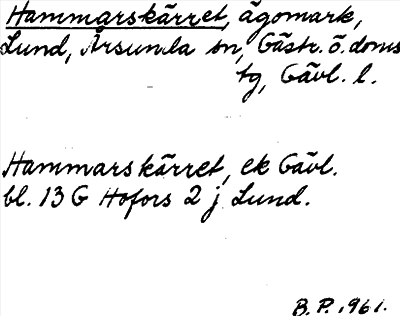 Hammarskärret, ägomark,
Lund, Årsunda sn, Gästr. ö. doms
tg, Gävl. l.
Hammarskärret, ek Gävl.
bl. 13 G Hofors 2 j Lund.
B. P. 1961.